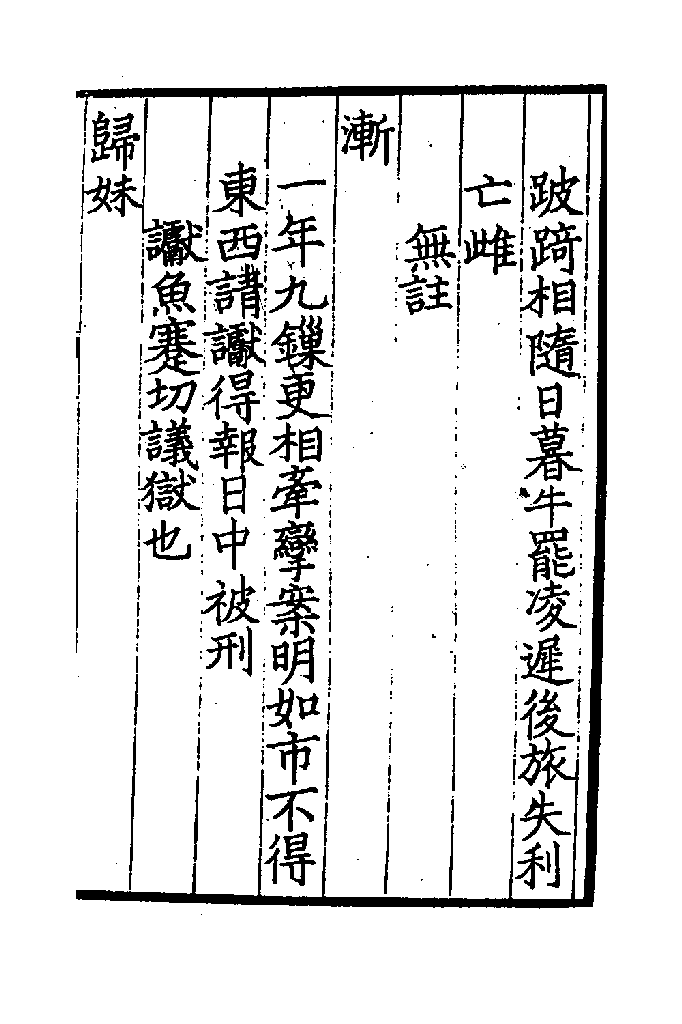 跛踦相隨日暮牛罷凌遲後旅失利
亡雌
無註
漸
一年九鏁更相牽攣案明如市不得
東西請讞得報日中被刑
讞魚蹇切議獄也
歸妹